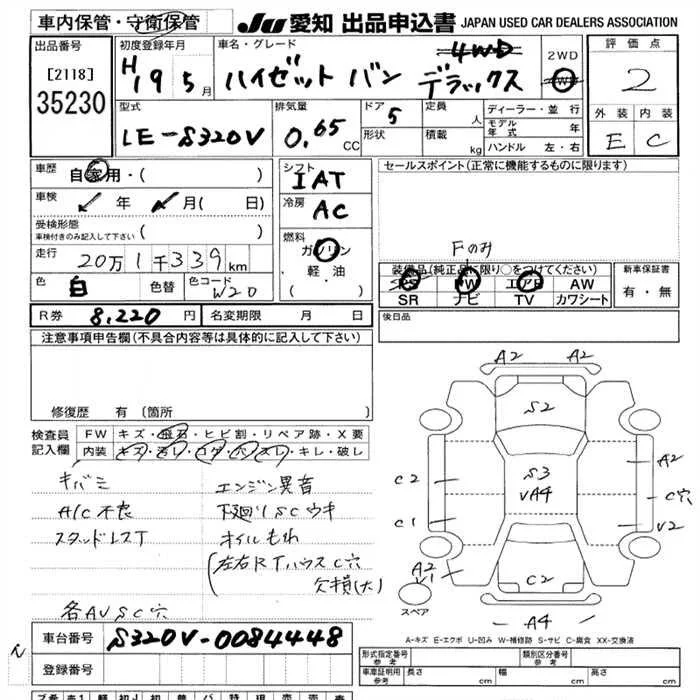 車内保管・守衛保管
JU 愛知 出品申込書 JAPAN USED CAR DEALERS ASSOCIATION
出品番号
[2118]
35230
初度登録年月
H19 5月
車名・グレード
ハイゼット バン デラックス
4WD
2WD
4WD
評価点
2
型式
LE-S320V
排気量
0.65 CC
ドア 5
形状
定員 人
積載 kg
ディーラー・並行
モデル年式 年
ハンドル 左・右
外装 内装
E C
車歴 自家用・( )
車検 年 月( 日)
受検形態
車検付きのみ記入して下さい
走行 20万1千339km
色 白 色替 色コード W20
シフト
IAT
冷房
AC
燃料
ガソリン
軽油
・( )
セールスポイント(正常に機能するものに限ります)
Fのみ
装備品(純正品に限り○をつけてください)
PS PW エアB AW
SR ナビ TV カワシート
新車保証書
有・無
R券 8,220円 名変期限 月 日
後日品
注意事項申告欄(不具合内容等は具体的に記入して下さい)
修復歴 有 〔箇所 〕
検査員記入欄
FW キズ・飛石・ヒビ割・リペア跡・X要
内装 キズ・汚レ・コゲ・穴・スレ・キレ・破レ
キバミ エンジン異音
A/C不良 下廻りSCウキ
スタッドレスT オイルもれ
(左右RTハウスC穴
欠損(大)
各AVSC穴
A2 A2
S2
S3
VA4
C2
C1
A2
C穴
V2
A2
V1
C2
A4
スペア
A-キズ E-エクボ U-凹み W-補修跡 S-サビ C-腐食 XX-交換済
車台番号 S320V-0084448
登録番号
形式指定番号
参考
類別区分番号
参考
車庫証明用
参考
長さ cm 幅 cm 高さ cm